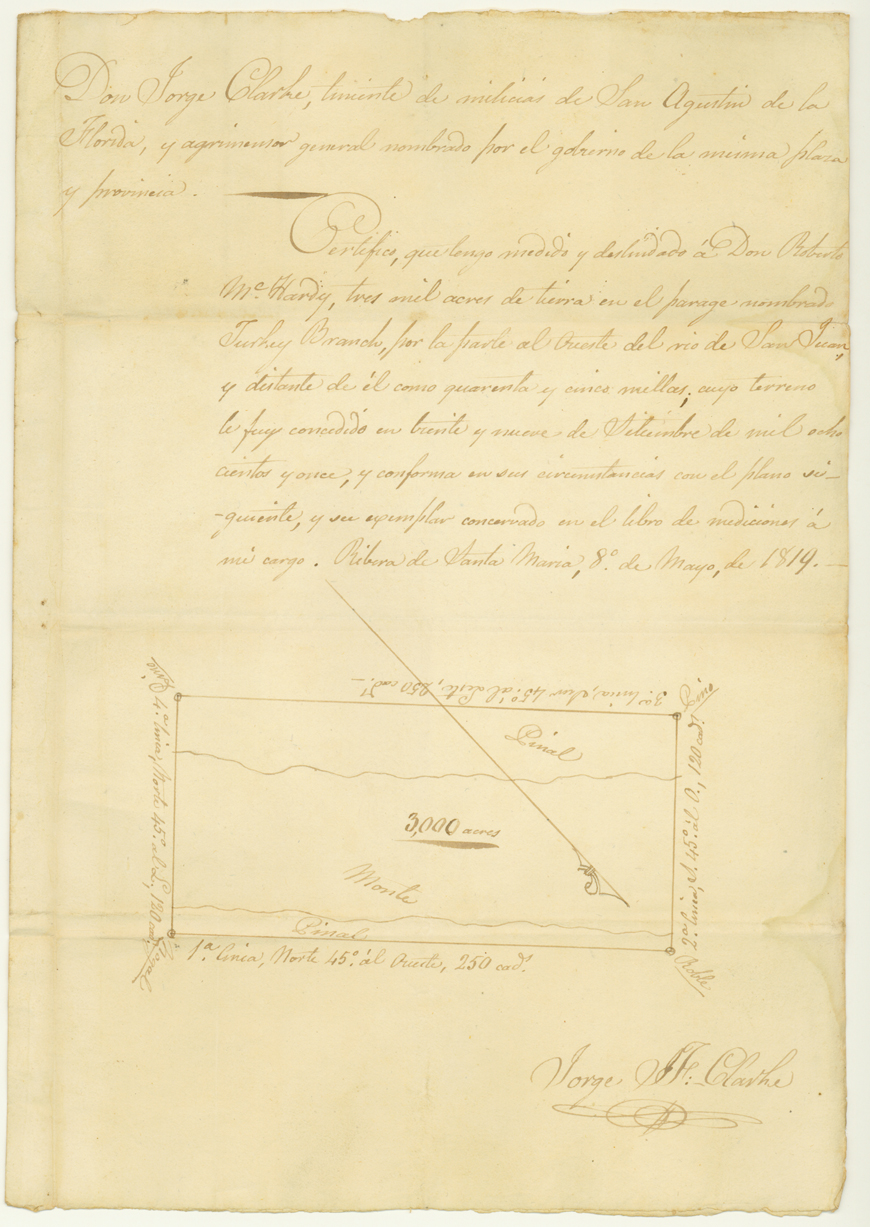 Don Jorge Clarke, teniente de milicias de San Agustin de la
Florida, y agrimensor general nombrado por el gobierno de la misma plaza
y provincia.
Certifico, que tengo medido y deslindado á Don Roberto
Mc. Hardy, tres mil acres de tierra en el parage nombrado
Turkey Branch, por la parte al Oueste del rio de San Juan,
y distante de él como quarenta y cinco millas; cuyo terreno
le fue concedido en veinte y nueve de Setiembre de mil ocho
cientos y once, y conforma en sus circumstancias con el plano si-
-guiente, y su exemplar concervado en el libro de mediciones á
mi cargo. Ribera de Santa Maria, 8º. de Mayo, de 1819.—
3ª. linia, Sur 45º. al Leste, 250 cads.
Pino
4ª. linia, Norte 45º. al L., 120 cads.
Pinal
3,000 acres
Monte
Pinal
2ª. linia, S. 45º. al O., 120 cads.
Pino
1ª. linia, Norte 45º. al Oueste, 250 cads.
Roble
Jorge J. F. Clarke